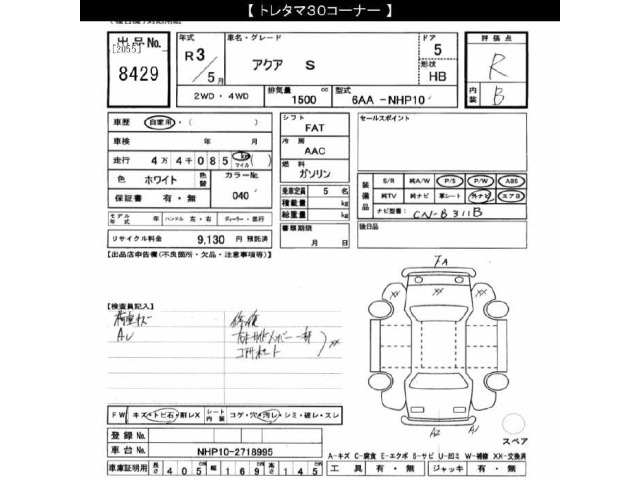 【 トレタマ30コーナー 】
出品No.
[2055]
8429
年式
R3/5月
車名・グレード
アクア S
ドア
5
形状
HB
評価点
R
内装
B
2WD・4WD
排気量
1500 cc
型式
6AA -NHP10
車歴 自家用・( )
車検 年 月
走行 4万4千085 km マイル ( )
色 ホワイト 色替 カラーNo. 040
保証書 有・無
モデル年式 年 ハンドル 左・右 ディーラー・並行
リサイクル料金 9,130 円 預託済
シフト
FAT
冷房
AAC
燃料
ガソリン
乗車定員 5 名
積載量 kg
総重量 kg
書類期限
月 日
セールスポイント
装備品
S/R 純A/W P/S P/W ABS
純TV 純ナビ 革シート 外ナビ エアB
ナビ型番: CN-B311B
後日品
【出品店申告欄(不良箇所・欠品・注意事項等)】
【検査員記入】
A1
修復
XX
FA
XX
XX
XX
A2
A1
スペア
FW キズ・トビ石・割レX
シート内装 コゲ・穴・汚レ・シミ・破レ・スレ
登録No.
車台No. NHP10-2718995
A-キズ C-腐食 E-エクボ S-サビ U-凹ミ W-補修 XX-交換済
車庫証明用 長さ 405 cm 幅 169 cm 高さ 145 cm
工具 有・無 ジャッキ 有・無